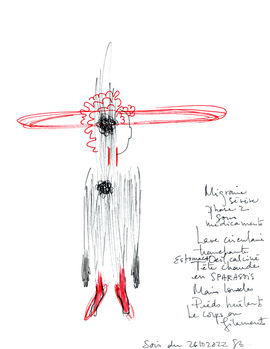 Migraine
Sévère
phase 2
Sous
médicaments
Lave circulaire
tranchante
Estomac Oeil calciné
Tête chaude
en SPARASSIS
Mains lourdes
Pieds hurlent
Le corps en
filaments
Soir du 26102022